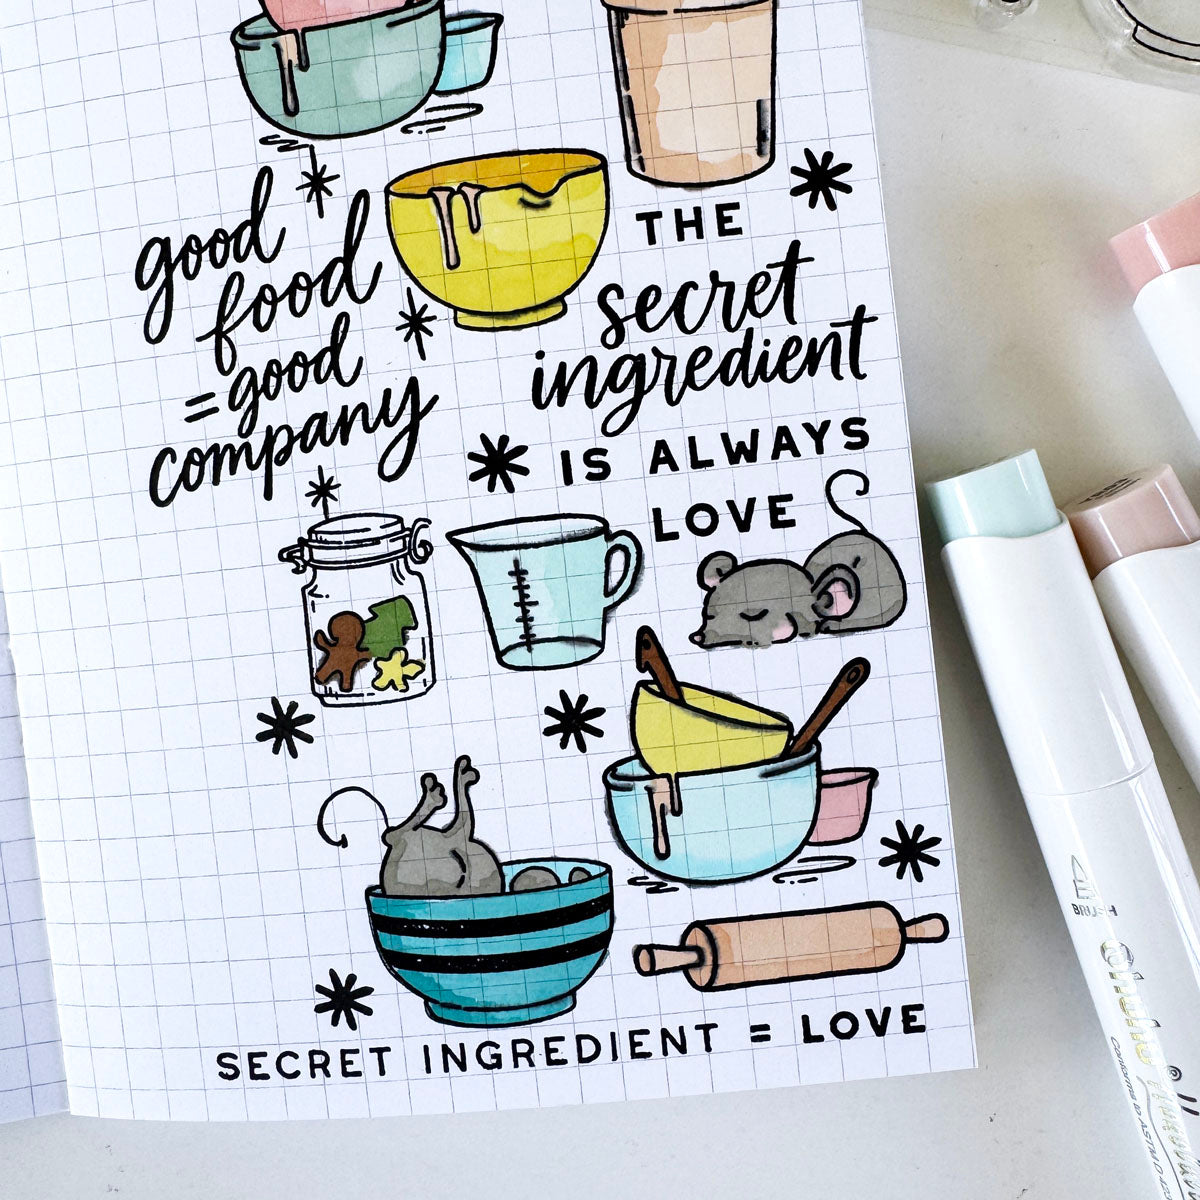 good
food
= good
company
THE
secret
ingredient
IS ALWAYS
LOVE
SECRET INGREDIENT = LOVE
BRUSH